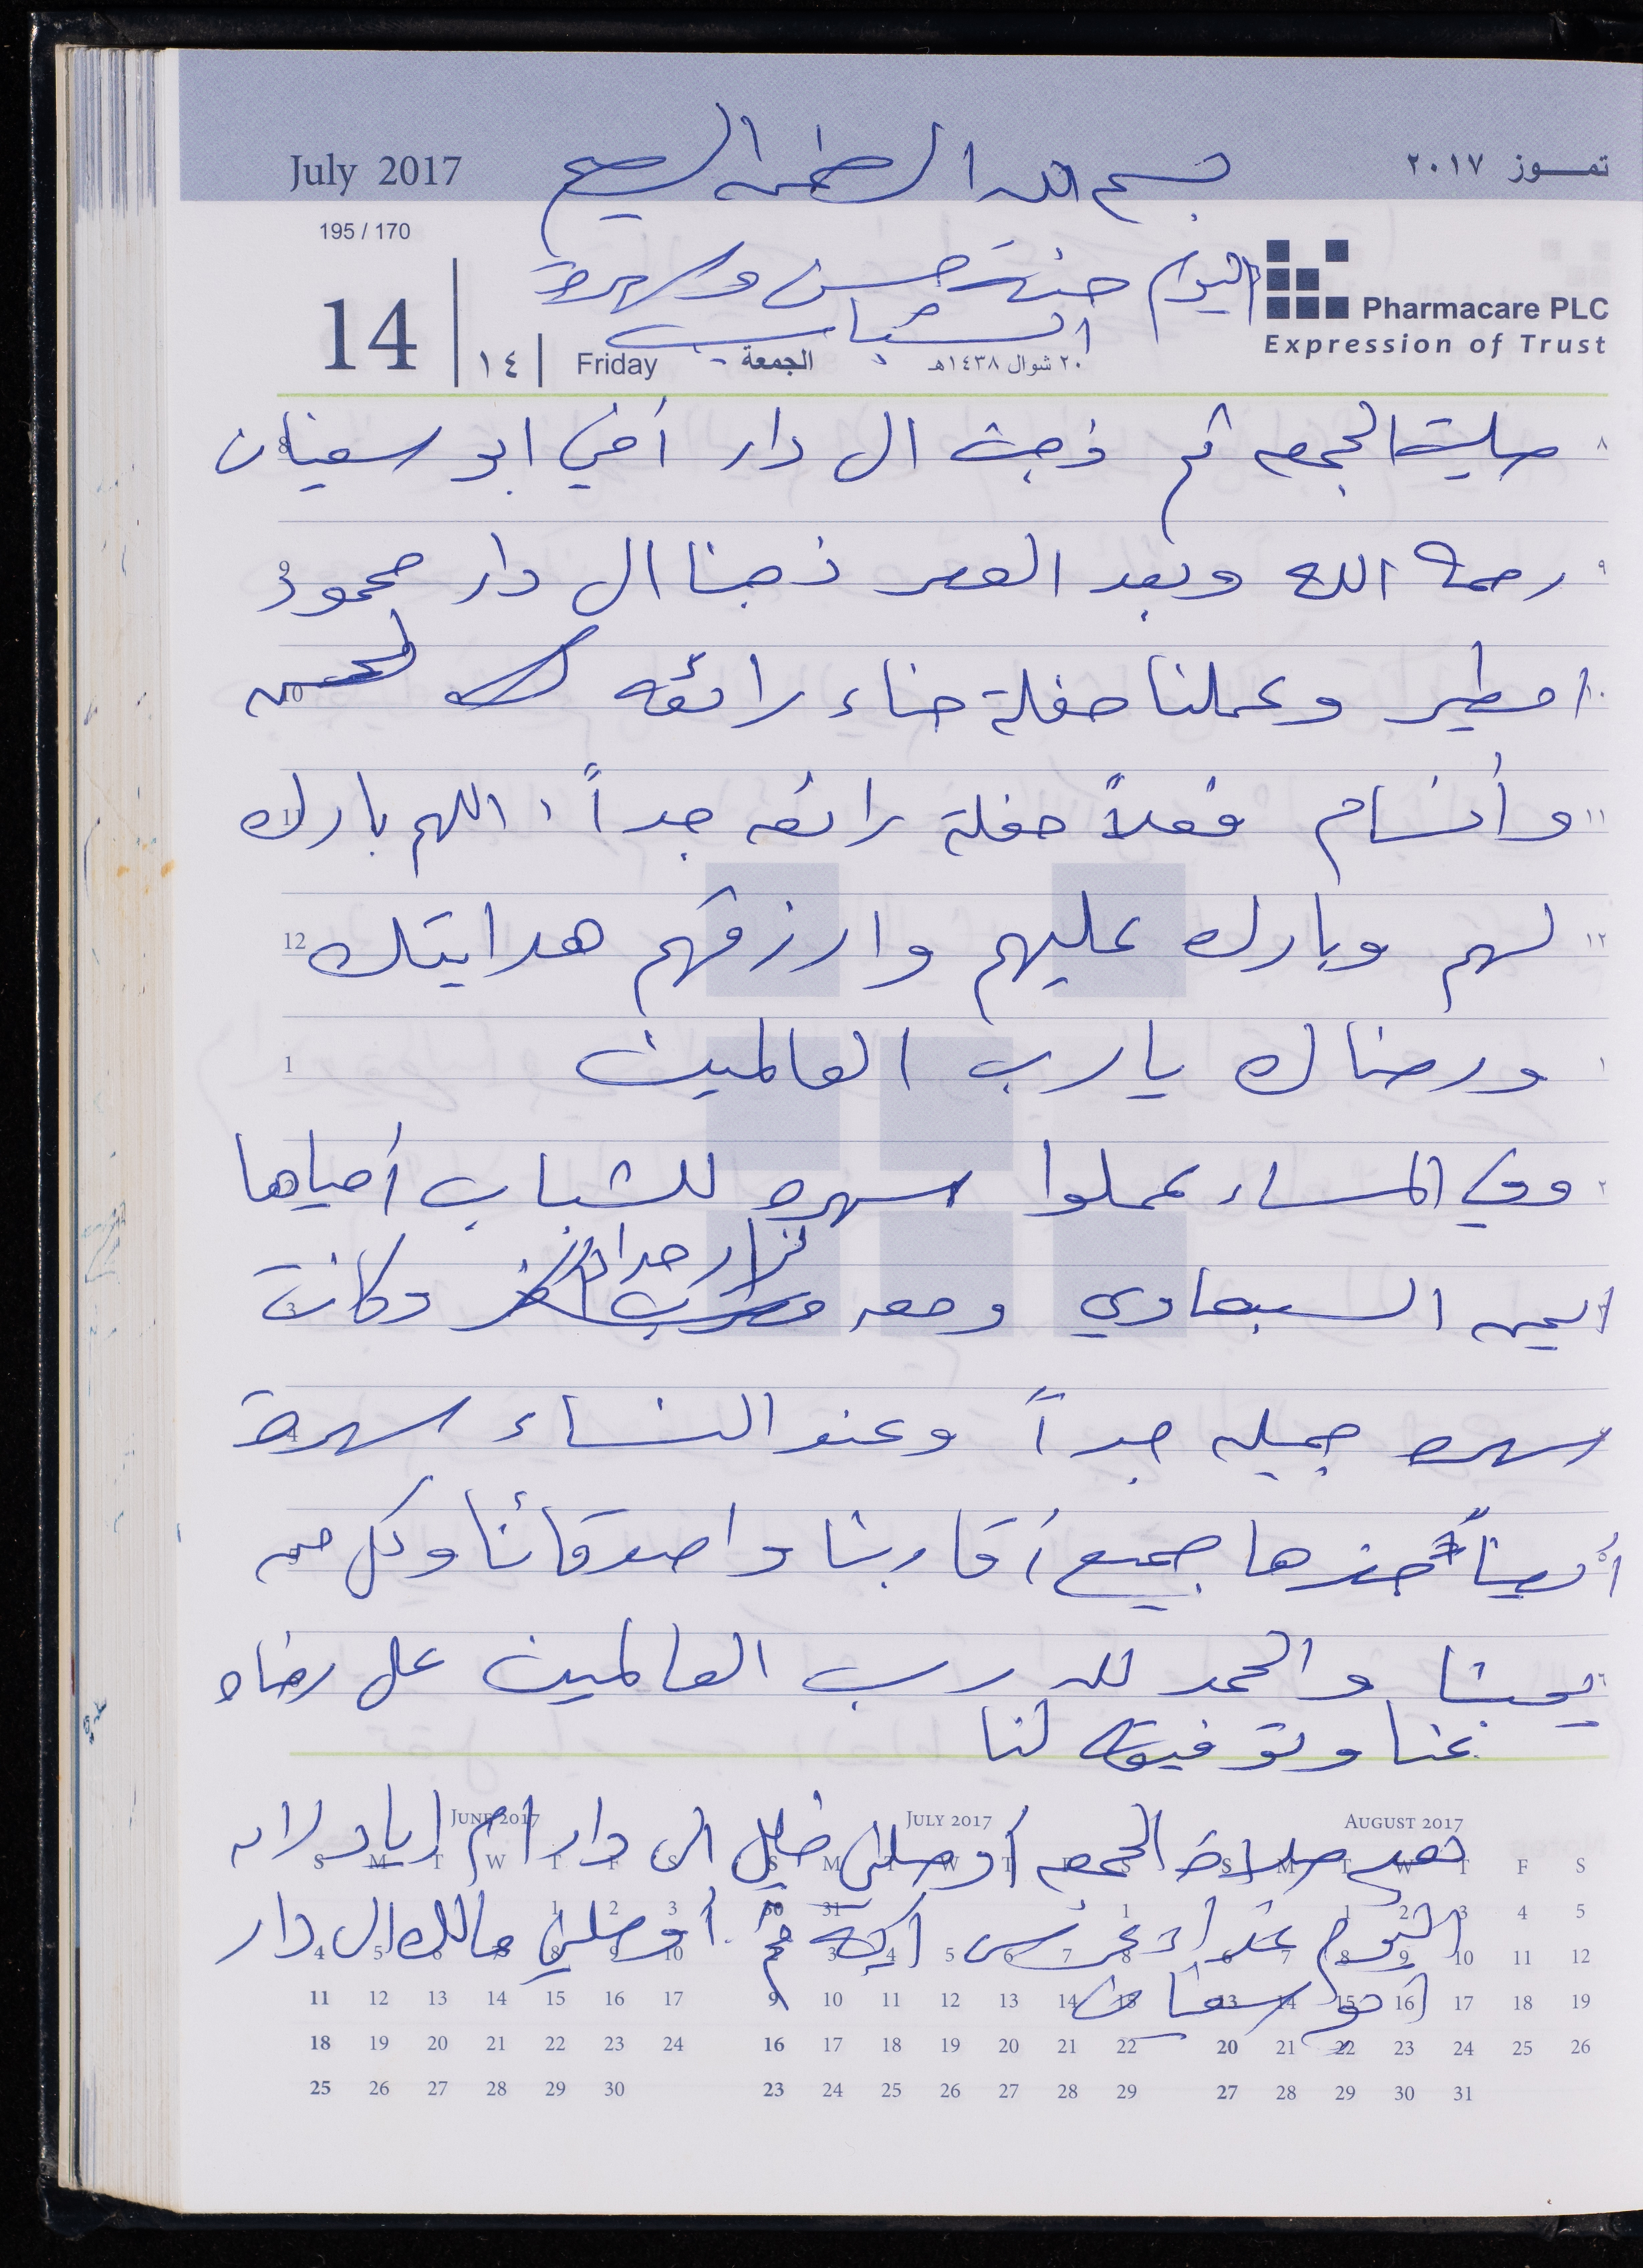 July 2017
بسم الله الرحمن الرحيم
تمـــوز ٢٠١٧
195 / 170
اليوم حنة حسن وسهرة
الشباب
Pharmacare PLC
Expression of Trust
14
١٤
Friday
الجمعة
٢٠ شوال ١٤٣٨هـ
٨ صليت الجمعه ثم ذهبت الى دار أخي ابو سفيان 8
٩ رحمه الله وبعد العصر ذهبنا الى دار محمود 9
١٠ امطير وعملنا حفلة حناء رائعه لحسن 10
١١ وأنسام فعلاً حفلة رائعه جداً، اللهم بارك 11
١٢ لهم وبارك عليهم وارزقهم هدايتك 12
١ ورضاك يارب العالمين 1
٢ وفي المساء عملوا سهره للشباب أحياها 2
نزار حمدان
ايمن السبعاوي ومعه وكانت 3
سهره جميله جداً وعند النساء سهرة 4
٥ أيضاً حضرها جميع أقاربنا واصدقائنا وكل من 5
٦ يحبنا والحمد لله رب العالمين على رضاه
عنا وتوفيقه لنا
JUNE 2017 JULY 2017 AUGUST 2017
بعد صلاة الجمعه أوصلني خليل الى دار ام اياد لانه
S M T W T F S S M T W T F S S M T W T F S
اليوم غداء عرس ثم أوصلني مالك الى دار
1 2 3 30 31 1 1 2 3 4 5
4 5 6 7 8 9 10 2 3 4 5 6 7 8 6 7 8 9 10 11 12
ابو سفيان
11 12 13 14 15 16 17 9 10 11 12 13 14 15 13 14 15 16 17 18 19
18 19 20 21 22 23 24 16 17 18 19 20 21 22 20 21 22 23 24 25 26
25 26 27 28 29 30 23 24 25 26 27 28 29 27 28 29 30 31